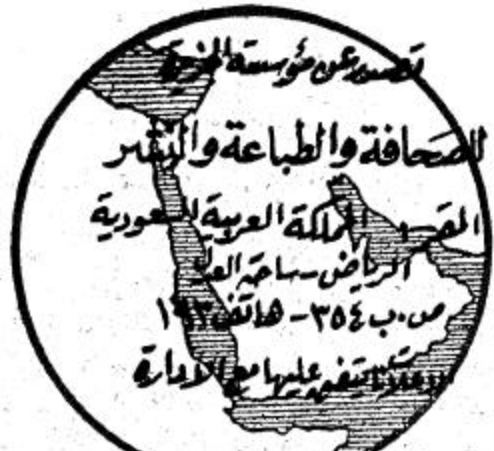 تصدر عن مؤسسة الجزيرة
للصحافة والطباعة والنشر
المقر - المملكة العربية السعودية
الرياض - ساحة العدل
ص.ب ٣٥٤ - هاتف
الاعلانات يتفق عليها مع الادارة